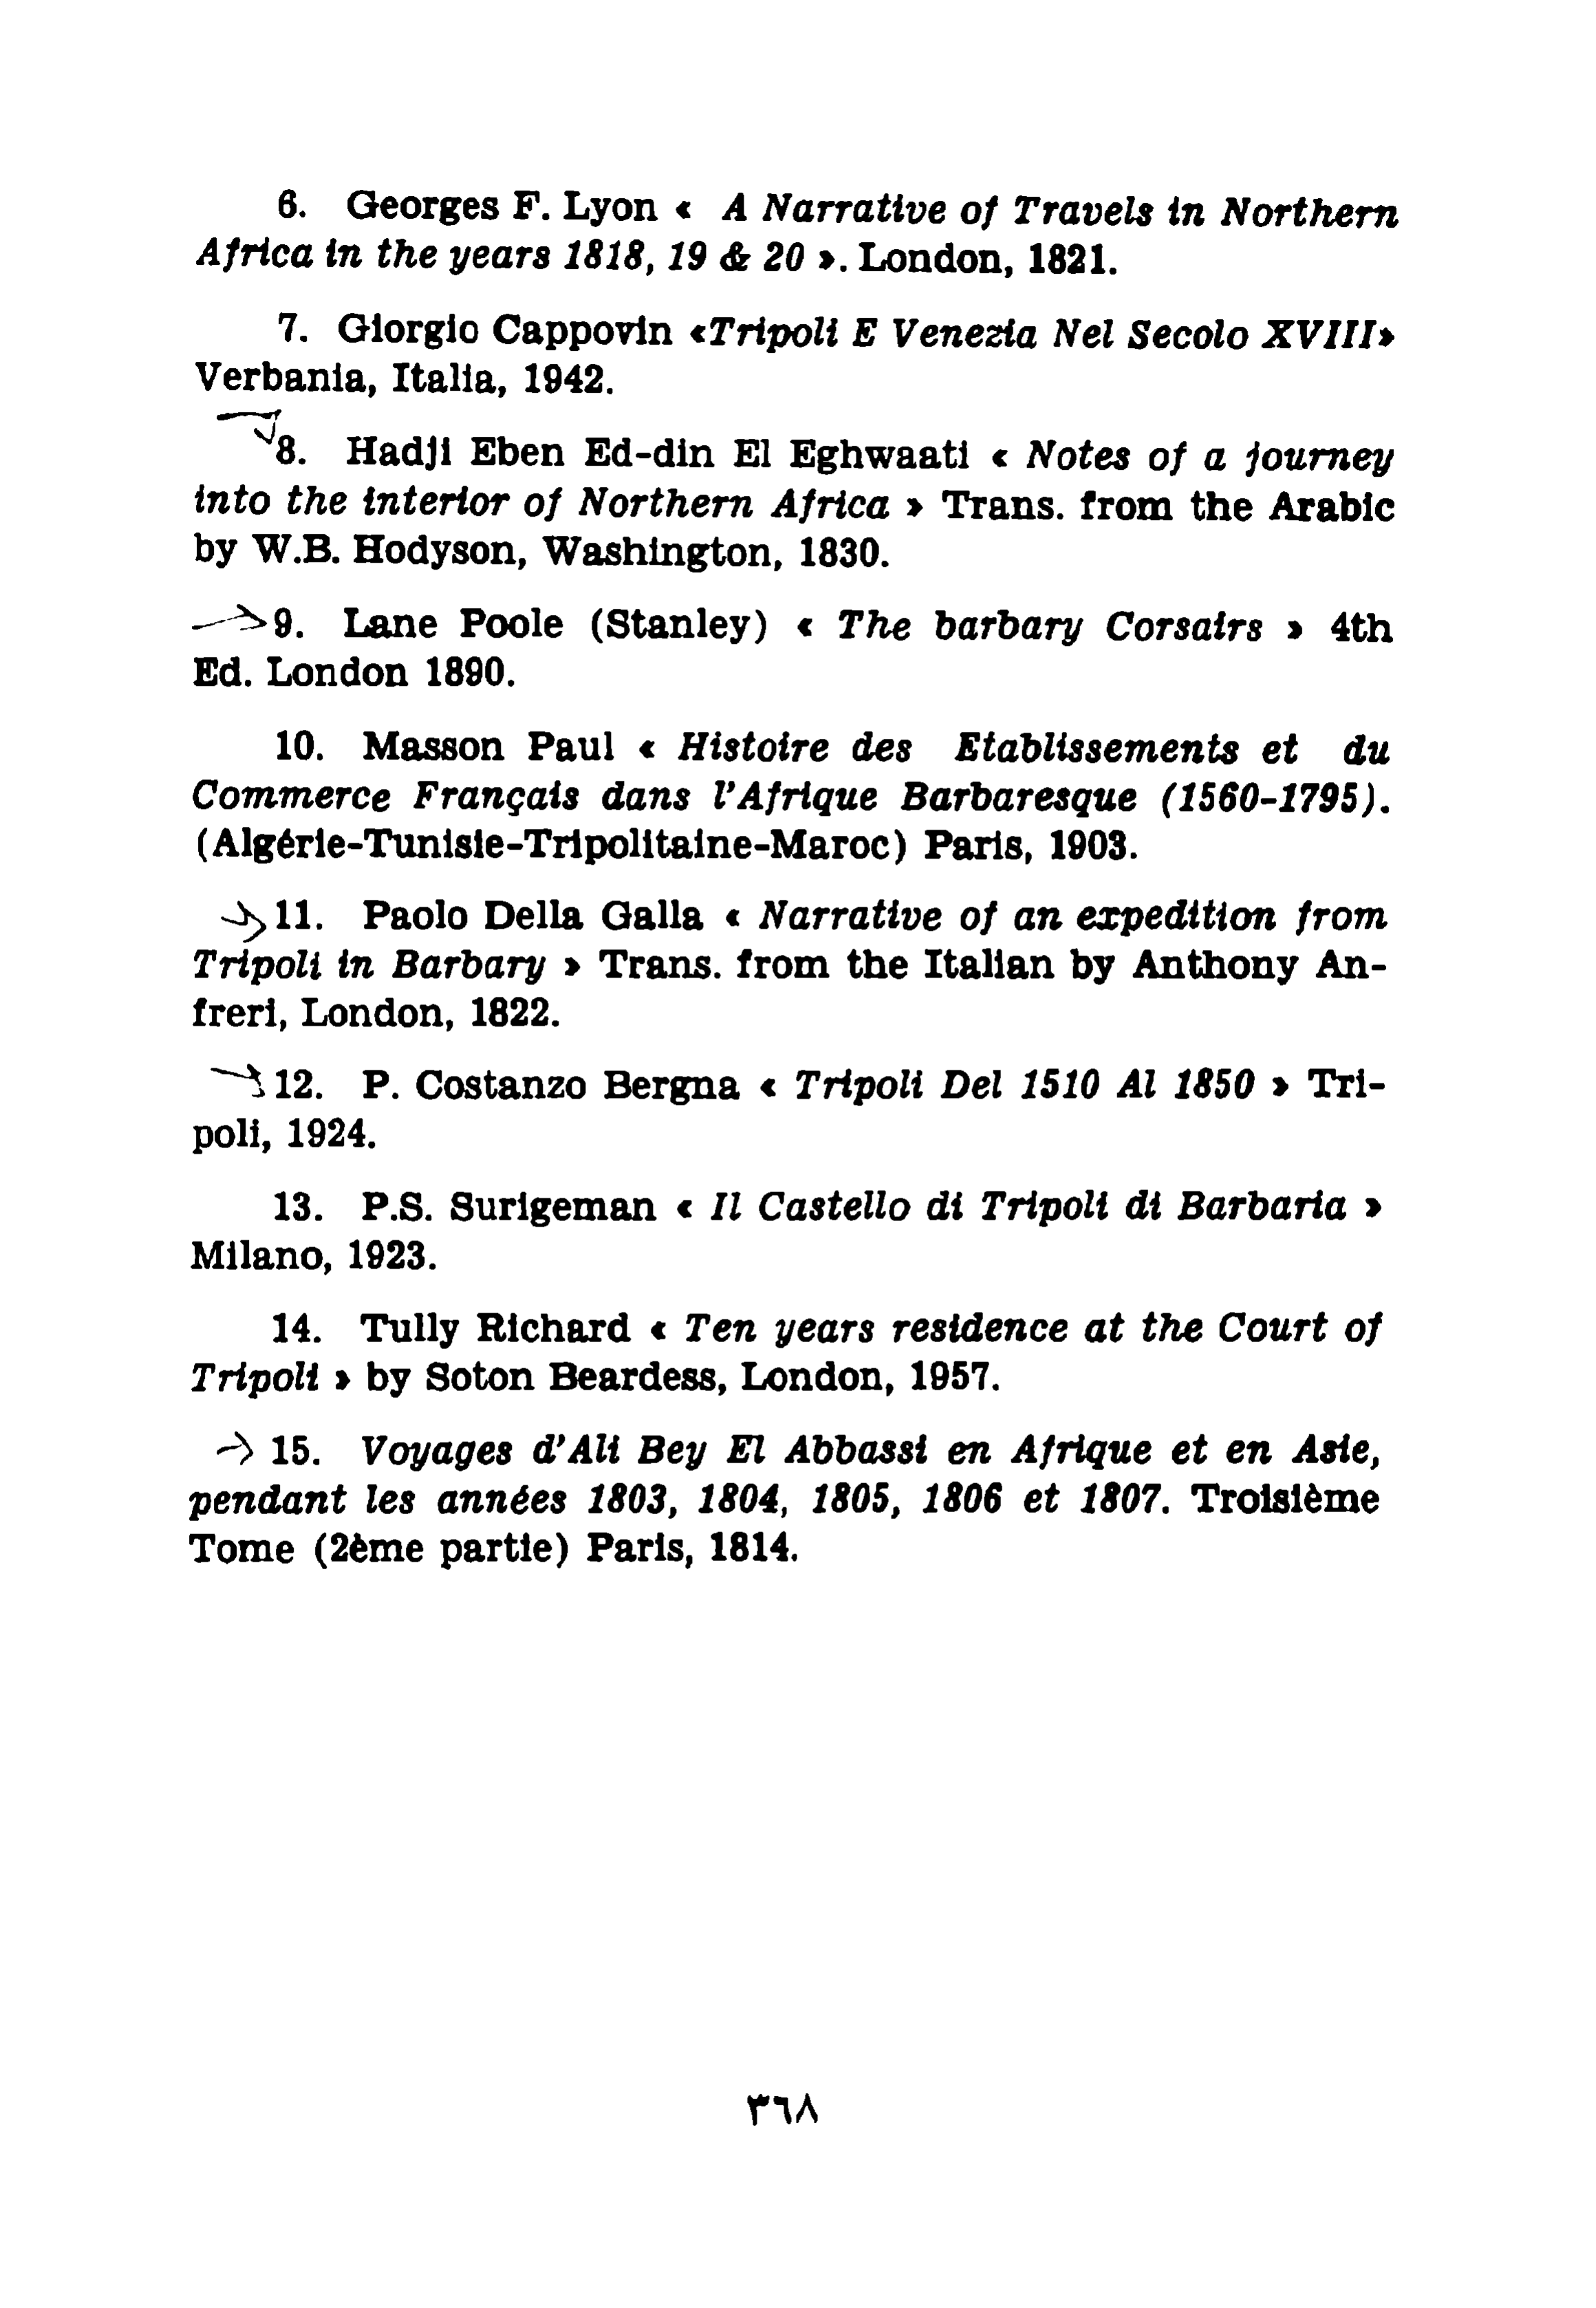 6. Georges F. Lyon « A Narrative of Travels in Northern
Africa in the years 1818, 19 & 20 ». London, 1821.
7. Giorgio Cappovin «Tripoli E Venezia Nel Secolo XVIII»
Verbania, Italia, 1942.
8. Hadji Eben Ed-din El Eghwaati « Notes of a journey
into the interior of Northern Africa » Trans. from the Arabic
by W.B. Hodyson, Washington, 1830.
9. Lane Poole (Stanley) « The barbary Corsairs » 4th
Ed. London 1890.
10. Masson Paul « Histoire des Etablissements et du
Commerce Français dans l'Afrique Barbaresque (1560-1795).
(Algérie-Tunisie-Tripolitaine-Maroc) Paris, 1903.
11. Paolo Della Galla « Narrative of an expedition from
Tripoli in Barbary » Trans. from the Italian by Anthony An-
freri, London, 1822.
12. P. Costanzo Bergna « Tripoli Del 1510 Al 1850 » Tri-
poli, 1924.
13. P.S. Surigeman « Il Castello di Tripoli di Barbaria »
Milano, 1923.
14. Tully Richard « Ten years residence at the Court of
Tripoli » by Soton Beardess, London, 1957.
15. Voyages d'Ali Bey El Abbassi en Afrique et en Asie,
pendant les années 1803, 1804, 1805, 1806 et 1807. Troisième
Tome (2ème partie) Paris, 1814.
٣٦٨